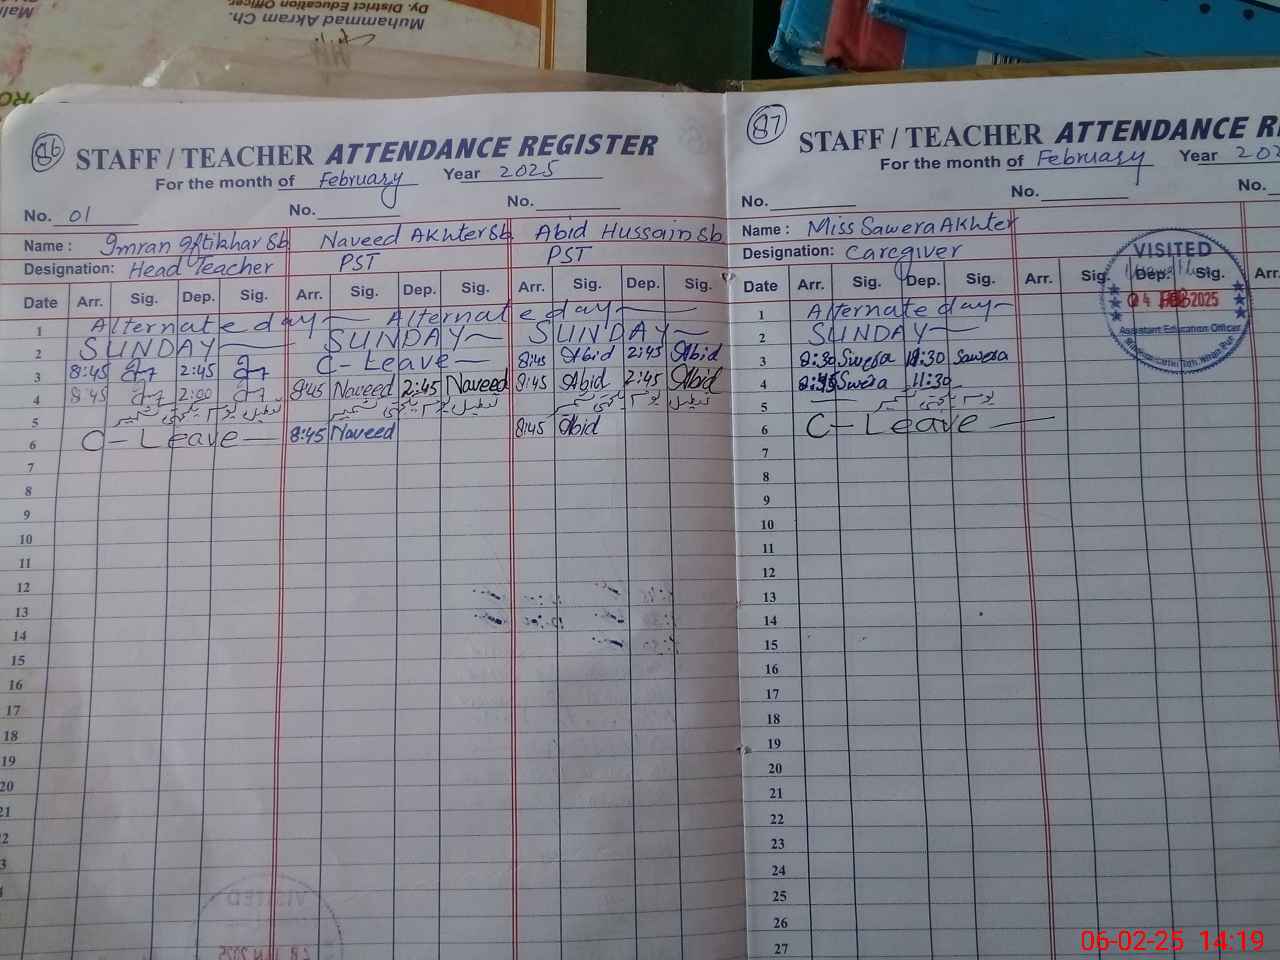 Muhammad Akram Ch.
Dy. District Education Officer
86
STAFF / TEACHER ATTENDANCE REGISTER
For the month of February Year 2025
No. 01 No. No.
Name : Imran Iftikhar Sb Naveed Akhter Sb Abid Hussain Sb
Designation: Head Teacher PST PST
Date Arr. Sig. Dep. Sig. Arr. Sig. Dep. Sig. Arr. Sig. Dep. Sig.
1 Alternate day Alternate day
2 SUNDAY SUNDAY SUNDAY
3 8:45 2:45 C-Leave 8:45 Abid 2:45 Abid
4 8:45 2:00 8:45 Naveed 2:45 Naveed 8:45 Abid 2:45 Abid
5 تعطیل یوم یکجہتی کشمیر تعطیل یوم یکجہتی کشمیر
6 C-Leave 8:45 Naveed 8:45 Abid
7
8
9
10
11
12
13
14
15
16
17
18
19
20
21
87
STAFF / TEACHER ATTENDANCE R
For the month of February Year 202
No. No. No.
Name : Miss Sawera Akhter
Designation: Caregiver
Date Arr. Sig. Dep. Sig. Arr. Sig. Dep. Sig. Arr.
1 Alternate day
2 SUNDAY
3 8:30 Swera 11:30 Sawera
4 Swera 11:30
5 یوم یکجہتی کشمیر
6 C-Leave
7
8
9
10
11
12
13
14
15
16
17
18
19
20
21
22
23
24
25
26
27
VISITED
04 FEB 2025
Assistant Education Officer
VISITED
06-02-25 14:19